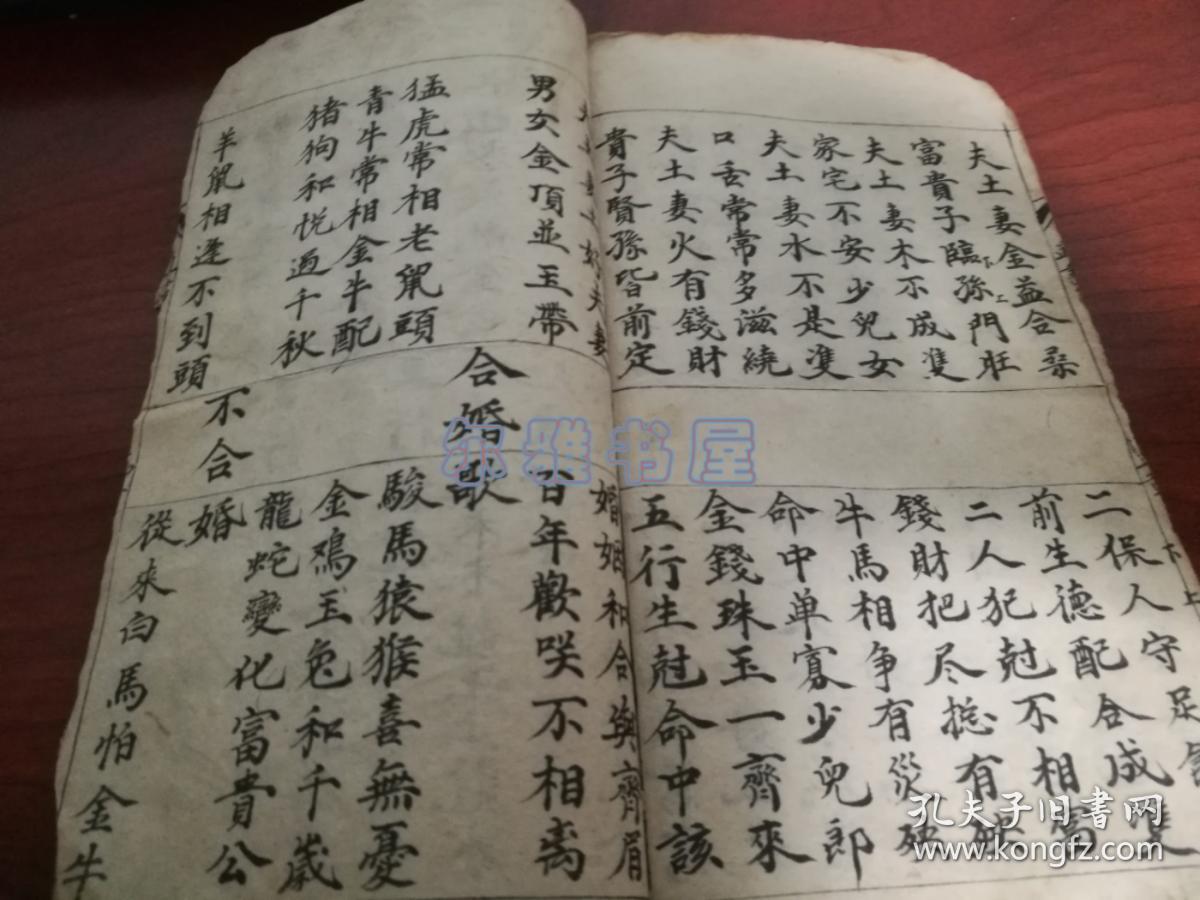 夫土妻金益合尋
富貴子臨孫門旺
下
上
夫土妻木不成双
家宅不安少兒女
夫土妻水不是双
口舌常常多滋繞
夫土妻火有錢財
貴子賢孫皆前定
下
上
二保人守足
前生德配合成双
二人犯尅不相
錢財把尽捴有
牛馬相争有災
命中单寡少兒郎
金錢珠玉一齊來
五行生尅命中該
夫妻
婚姻和合與齊眉
男女金頂並玉帶
百年歡咲不相离
合婚歌
猛虎常相老鼠頭
駿馬猿猴喜無憂
青牛常相金牛配
金鸡玉兔和千歲
猪狗和悦過千秋
龍蛇變化富貴公
不合婚
羊鼠相逢不到頭
從來白馬怕金牛
尔雅书屋
孔夫子旧書网
www.kongfz.com